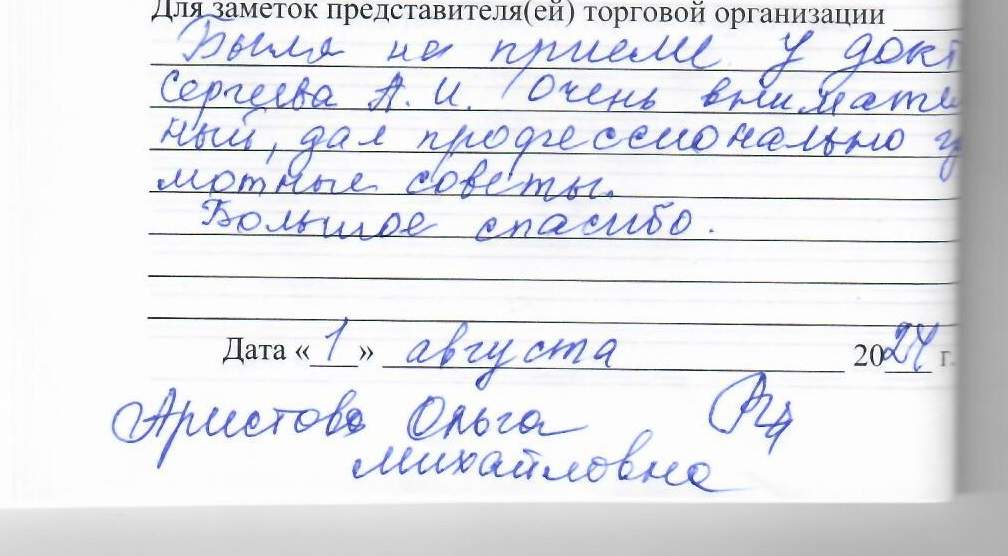 Для заметок представителя(ей) торговой организации
Была на приеме у докт
Сергеева А. И. Очень внимате
ный, дал профессионально г
мотные советы.
Большое спасибо.
Дата «1» августа 2024 г.
Аристова Ольга
Михайловна